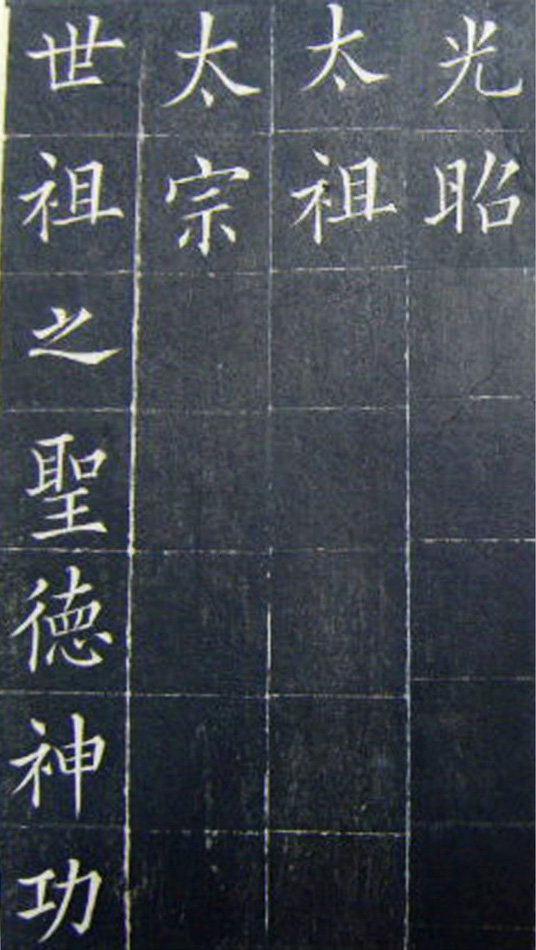 光昭
太祖
太宗
世祖之聖徳神功